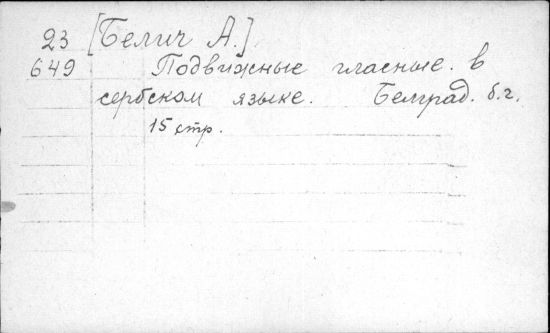 23 [Белич А.]
649 Подвижные гласные в
сербском языке. Белград. б.г.
15 стр.